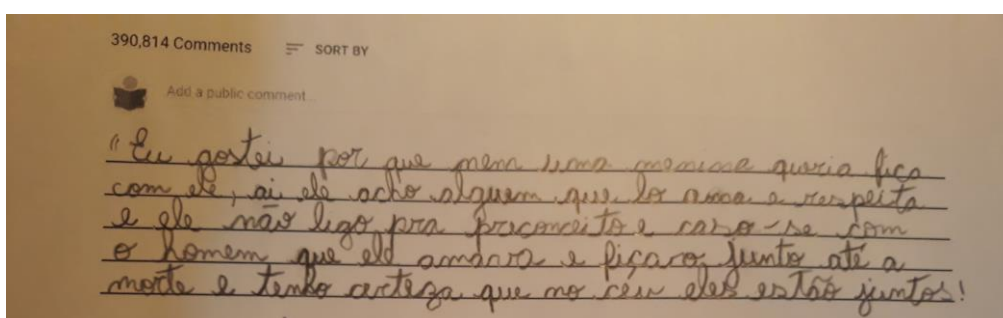 390,814 Comments SORT BY
Add a public comment...
"Eu gostei por que nem uma menina queria fica
com ele, ai ele acho alguem que lo ama e respeita
e ele não ligo pra preconceito e caso-se com
o homem que ele amava e ficaro junto até a
morte e tenho certeza que no céu eles estão juntos!